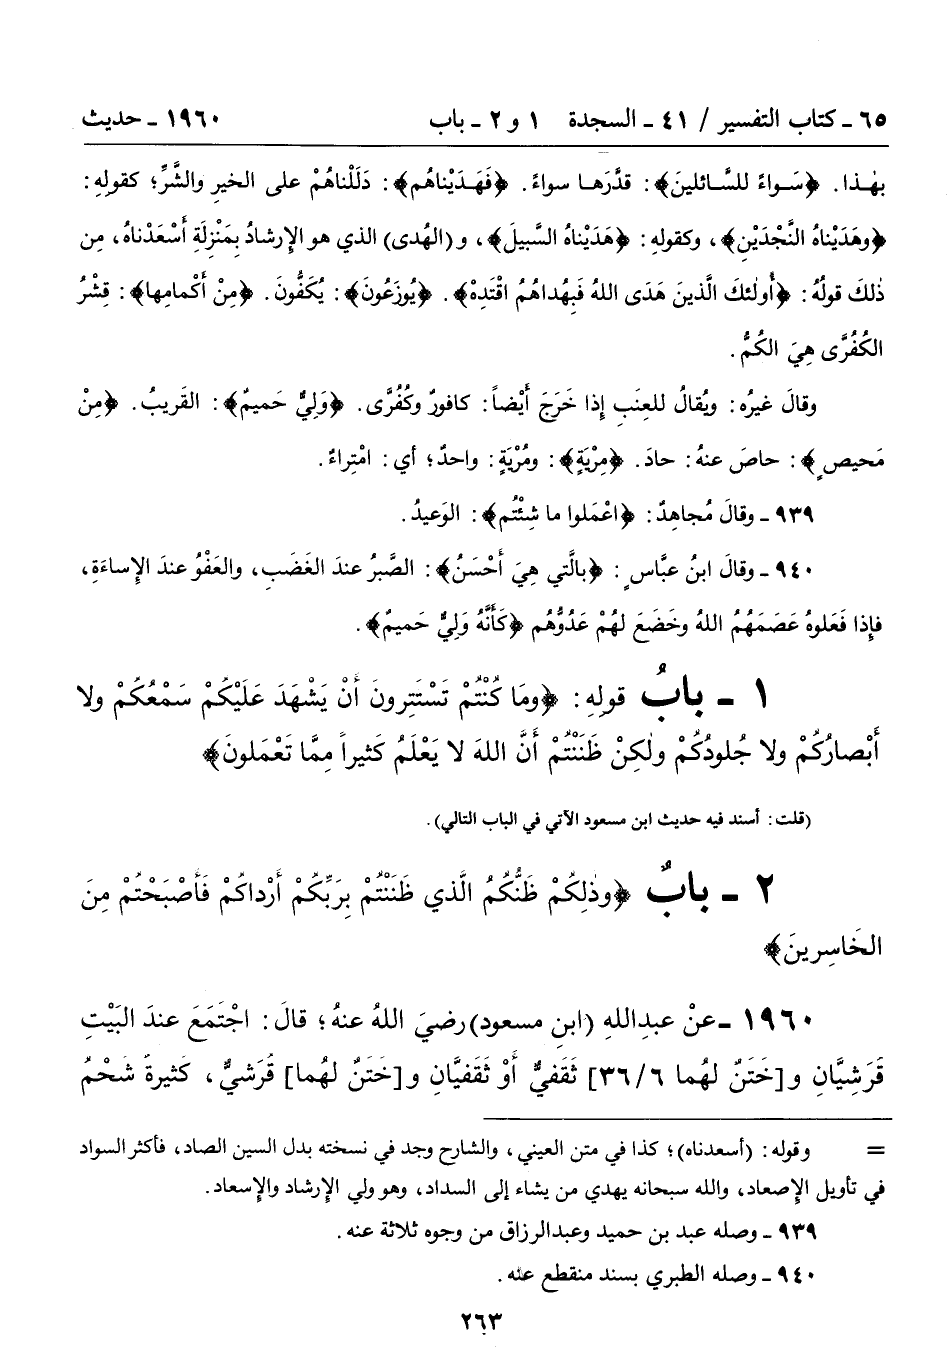 ٦٥ ـ كتاب التفسير / ٤١ ـ السجدة ١ و ٢ ـ باب ١٩٦٠ ـ حديث
بهٰذا. ﴿سَواءً للسَّائلينَ﴾: قدَّرَها سواءً. ﴿فَهَدَيْناهُم﴾: دَلَلْناهُمْ على الخيرِ والشَّرِّ؛ كقولِهِ:
﴿وهَدَيْناهُ النَّجْدَيْنِ﴾، وكقولهِ: ﴿هَدَيْناهُ السَّبيلَ﴾، و(الهُدى) الذي هو الإرشادُ بِمَنْزِلَةِ أَسْعَدْناهُ، مِن
ذٰلكَ قولُهُ: ﴿أُولٰئكَ الَّذينَ هَدَى اللهُ فَبِهُداهُمُ اقْتَدِهْ﴾. ﴿يُوزَعُونَ﴾: يُكَفُّونَ. ﴿مِنْ أَكْمامِها﴾: قِشْرُ
الكُفُرَّى هِيَ الكُمُّ.
وقالَ غيرُه: ويُقالُ للعِنَبِ إِذا خَرَجَ أَيْضاً: كافورٌ وكُفُرَّى. ﴿وَلِيٌّ حَميمٌ﴾: القَريبُ. ﴿مِنْ
مَحيصٍ﴾: حاصَ عنهُ: حادَ. ﴿مِرْيَةٍ﴾: ومُرْيَةٍ: واحدٌ؛ أي: امْتِراءٌ.
٩٣٩ ـ وقالَ مُجاهِدٌ: ﴿اعْمَلوا ما شِئْتُم﴾: الوَعيدُ.
٩٤٠ ـ وقالَ ابنُ عبَّاسٍ: ﴿بالَّتي هِيَ أَحْسَنُ﴾: الصَّبرُ عندَ الغَضَبِ، والعَفْوُ عندَ الإِساءَةِ،
فإِذا فَعَلوهُ عَصَمَهُمُ اللهُ وخَضَعَ لهُمْ عَدُوُّهُم ﴿كَأَنَّهُ وَلِيٌّ حَميمٌ﴾.
١ ـ بابُ قولِهِ: ﴿ومَا كُنْتُمْ تَسْتَتِرونَ أَنْ يَشْهَدَ عَلَيْكُمْ سَمْعُكُمْ ولا
أَبْصارُكُمْ ولا جُلودُكُمْ ولٰكِنْ ظَنَنْتُمْ أَنَّ اللهَ لا يَعْلَمُ كَثيراً مِمَّا تَعْمَلونَ﴾
(قلت: أسند فيه حديث ابن مسعود الآتي في الباب التالي).
٢ ـ بابٌ ﴿وذٰلِكُمْ ظَنُّكُمُ الَّذي ظَنَنْتُمْ بِرَبِّكُمْ أَرْداكُمْ فَأَصْبَحْتُمْ مِنَ
الخَاسِرينَ﴾
١٩٦٠ ـ عنْ عبدِاللهِ (ابنِ مسعود) رضيَ اللهُ عنهُ؛ قالَ: اجْتَمَعَ عندَ البَيْتِ
قُرَشِيَّانِ و[خَتَنٌ لهُما ٣٦/٦] ثَقَفيٌّ أَوْ ثَقَفيَّانِ و[خَتَنٌ لهُما] قُرَشيٌّ، كَثيرةٌ شَحْمُ
= وقوله: (أسعدناه)؛ كذا في متن العيني، والشارح وجد في نسخته بدل السين الصاد، فأكثر السواد
في تأويل الإصعاد، والله سبحانه يهدي من يشاء إلى السداد، وهو ولي الإرشاد والإسعاد.
٩٣٩ ـ وصله عبد بن حميد وعبدالرزاق من وجوه ثلاثة عنه.
٩٤٠ ـ وصله الطبري بسند منقطع عنه.
٢٦٣